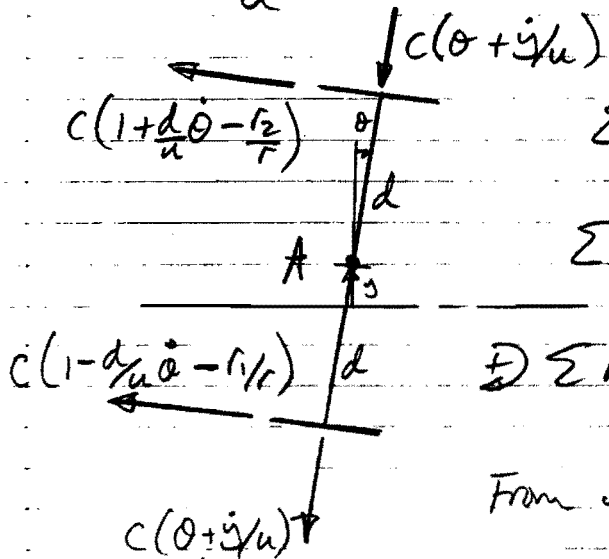 u
C(θ + ẏ/u)
C(1 + d/u θ̇ - r₂/r)
θ
d
Σ
A
y
C(1 - d/u θ̇ - r₁/r)
d
Σ
From
C(θ + ẏ/u)